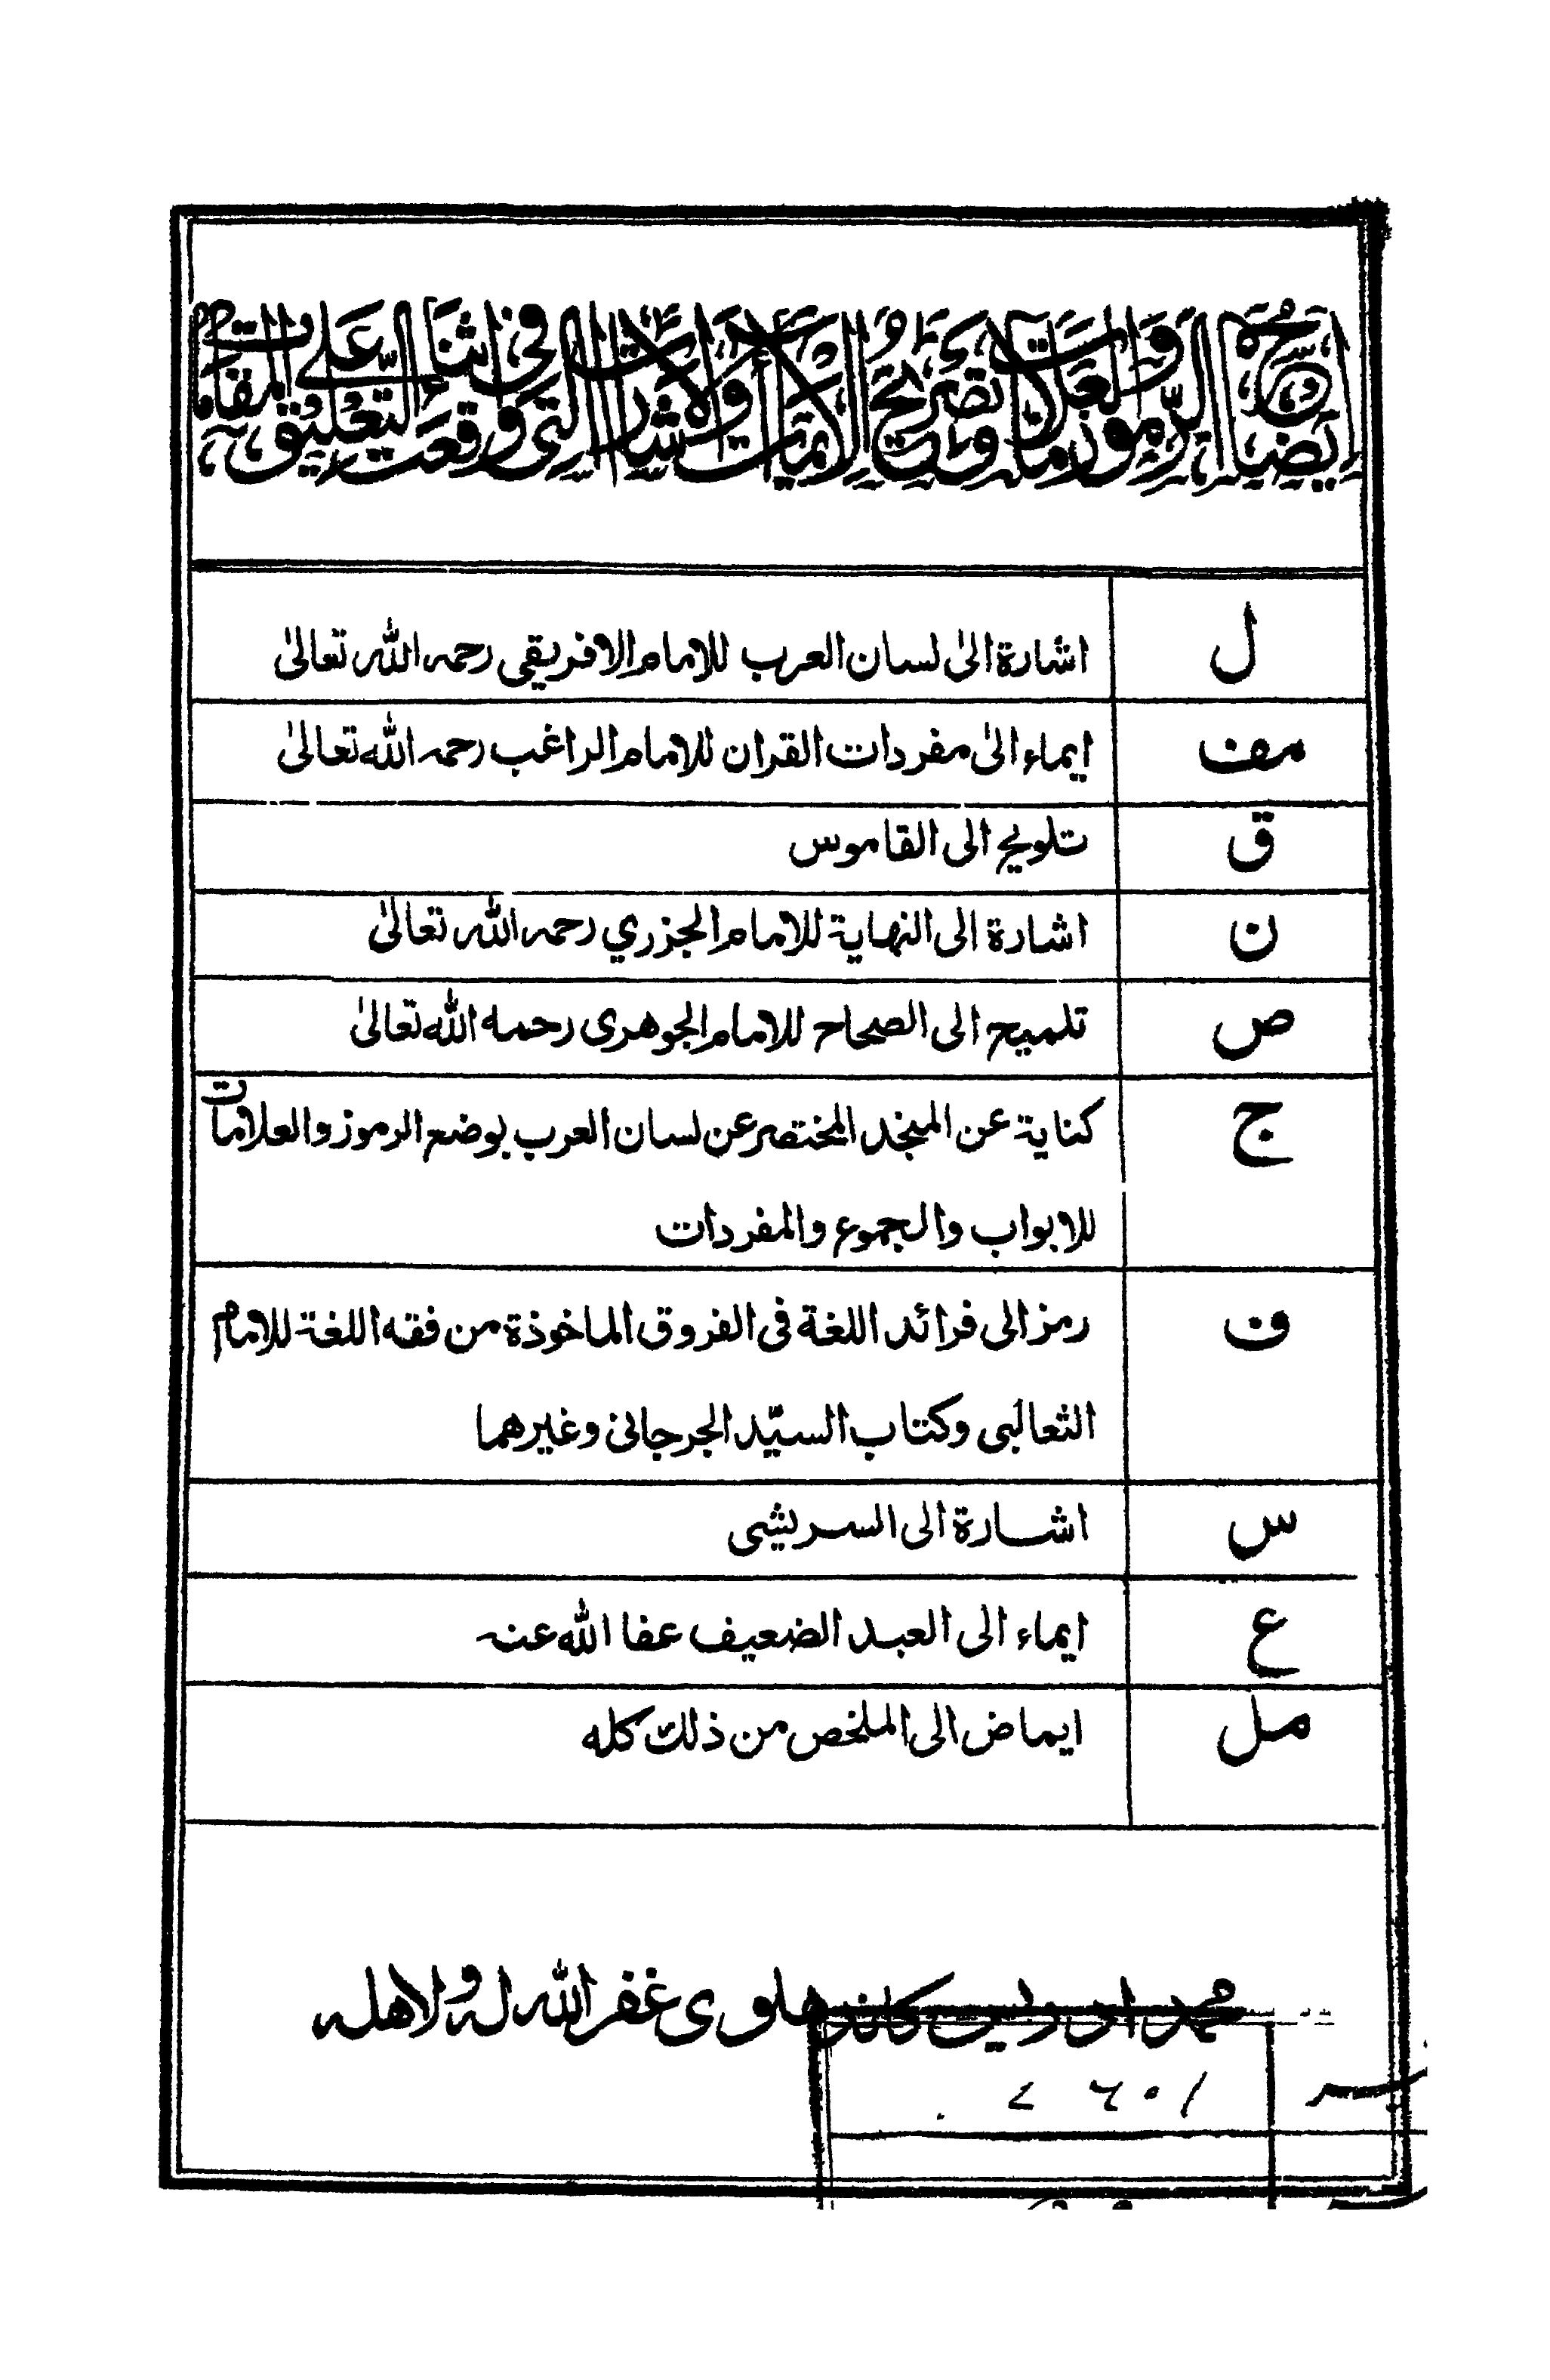 إيضاح الرموز والعلامات وتصريح الإيماءات والإشارات التي وقعت في أثناء التعليق على المقامات
ل اشارة الىٰ لسان العرب للامام الافريقي رحمه الله تعالىٰ
مف ايماء الىٰ مفردات القران للامام الراغب رحمه الله تعالىٰ
ق تلويح الى القاموس
ن اشارة الى النهاية للامام الجزري رحمه الله تعالىٰ
ص تلميح الى الصحاح للامام الجوهرى رحمه الله تعالىٰ
ج كناية عن المنجد المختصر عن لسان العرب بوضع الرموز والعلامات
للابواب والجموع والمفردات
ف رمز الى فرائد اللغة فى الفروق الماخوذة من فقه اللغة للامام
الثعالبى وكتاب السيّد الجرجانى وغيرهما
س اشارة الى السريشى
ع ايماء الى العبد الضعيف عفا الله عنه
مل ايماض الى الملخص من ذلك كله
محمد ادريس كاندهلوى غفر الله له ولاهله